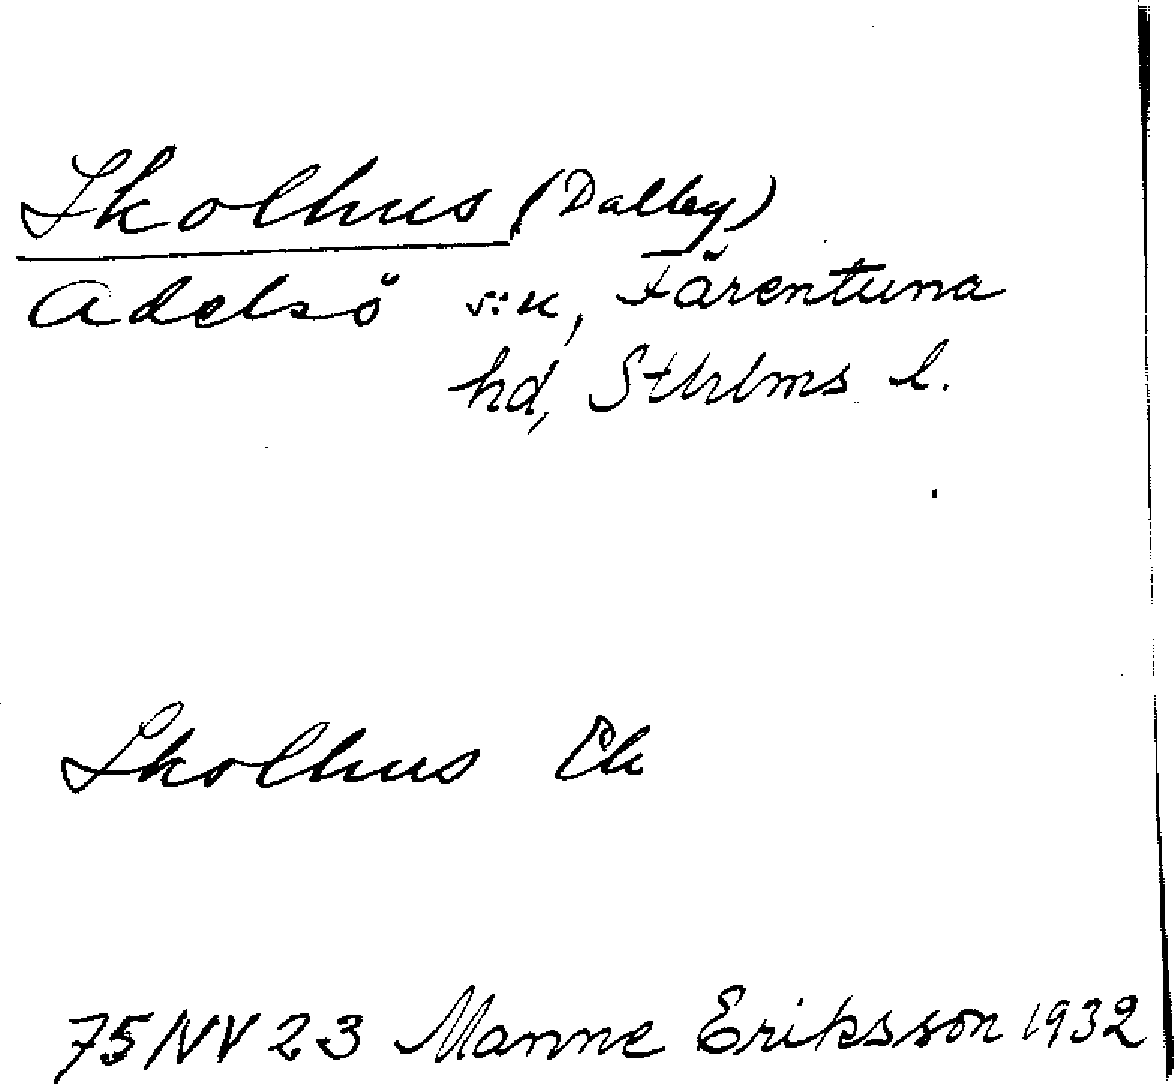 Skolhus (Dalby)
Adelsö s:n, Färentuna
hd, Sthlms l.
Skolhus Ek
75 NV 23 Manne Eriksson 1932